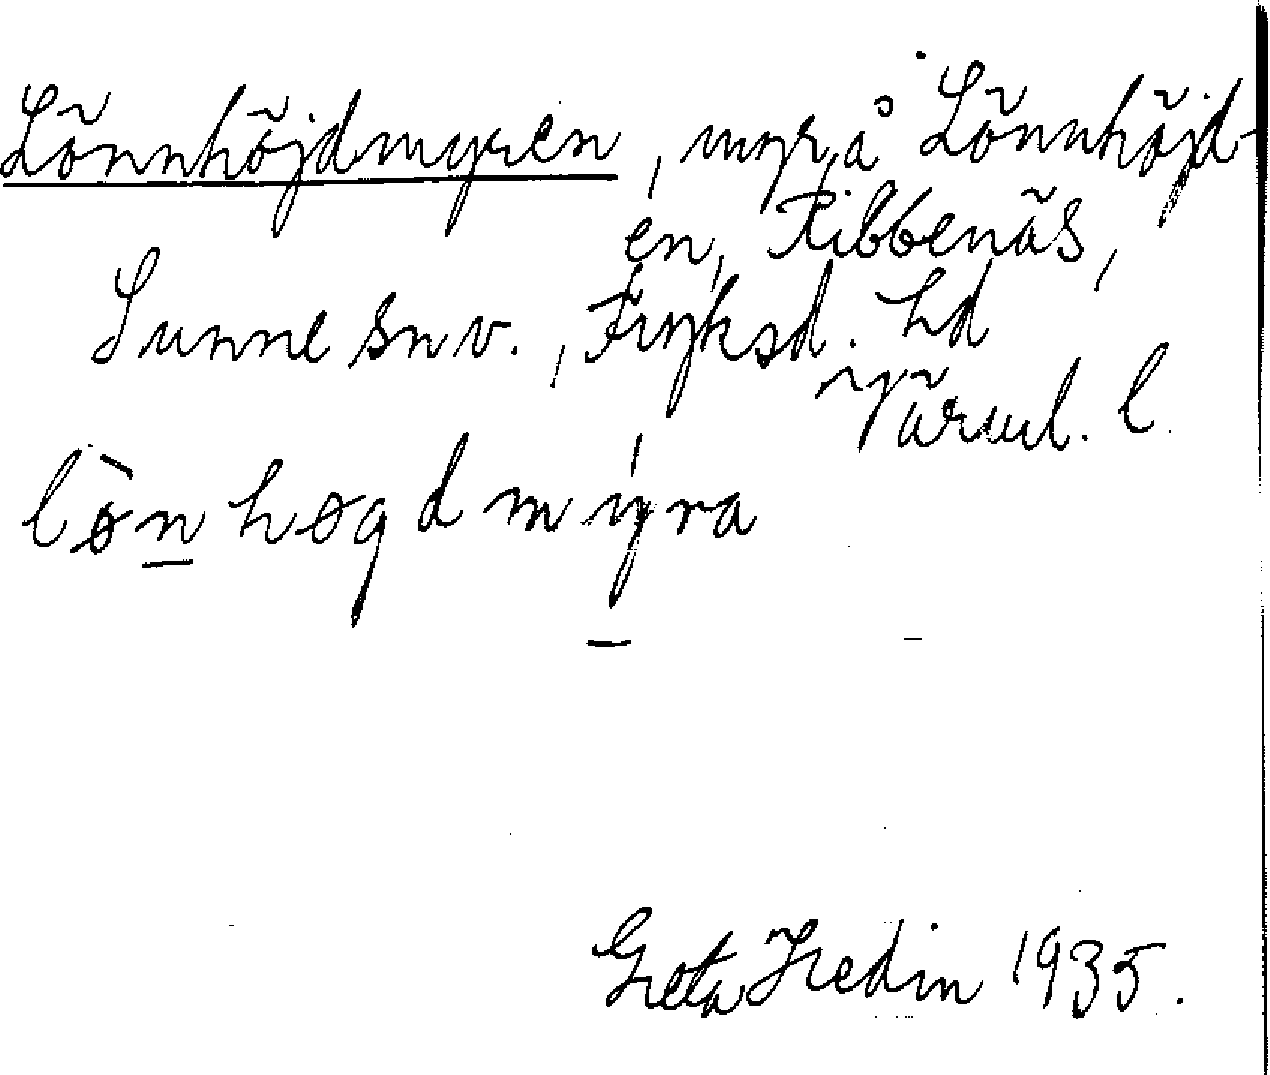 Lönnhöjdmyren, myr å Lönnhöjd-
en, Ribbenäs,
Sunne sn v., Fryksd. hd
Värml. l.
lø̀n høgdmýra
Greta Hedin 1935.